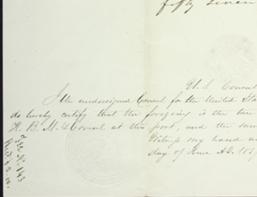 fifty seven
U. S. Consul
I the undersigned Consul for the United Sta
do hereby certify that the foregoing is the true
H. B. M. Consul at this port, and the
my hand
day of June A.D. 18